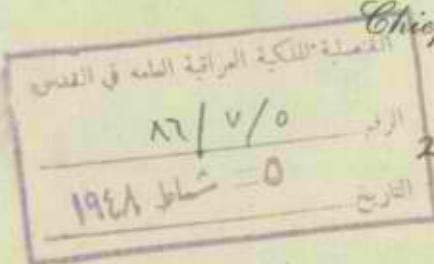 Chief
القنصلية الملكية العراقية العامه في القدس
الرقم ٨٦/٧/٥
2
التاريخ ٥ - شباط ١٩٤٨